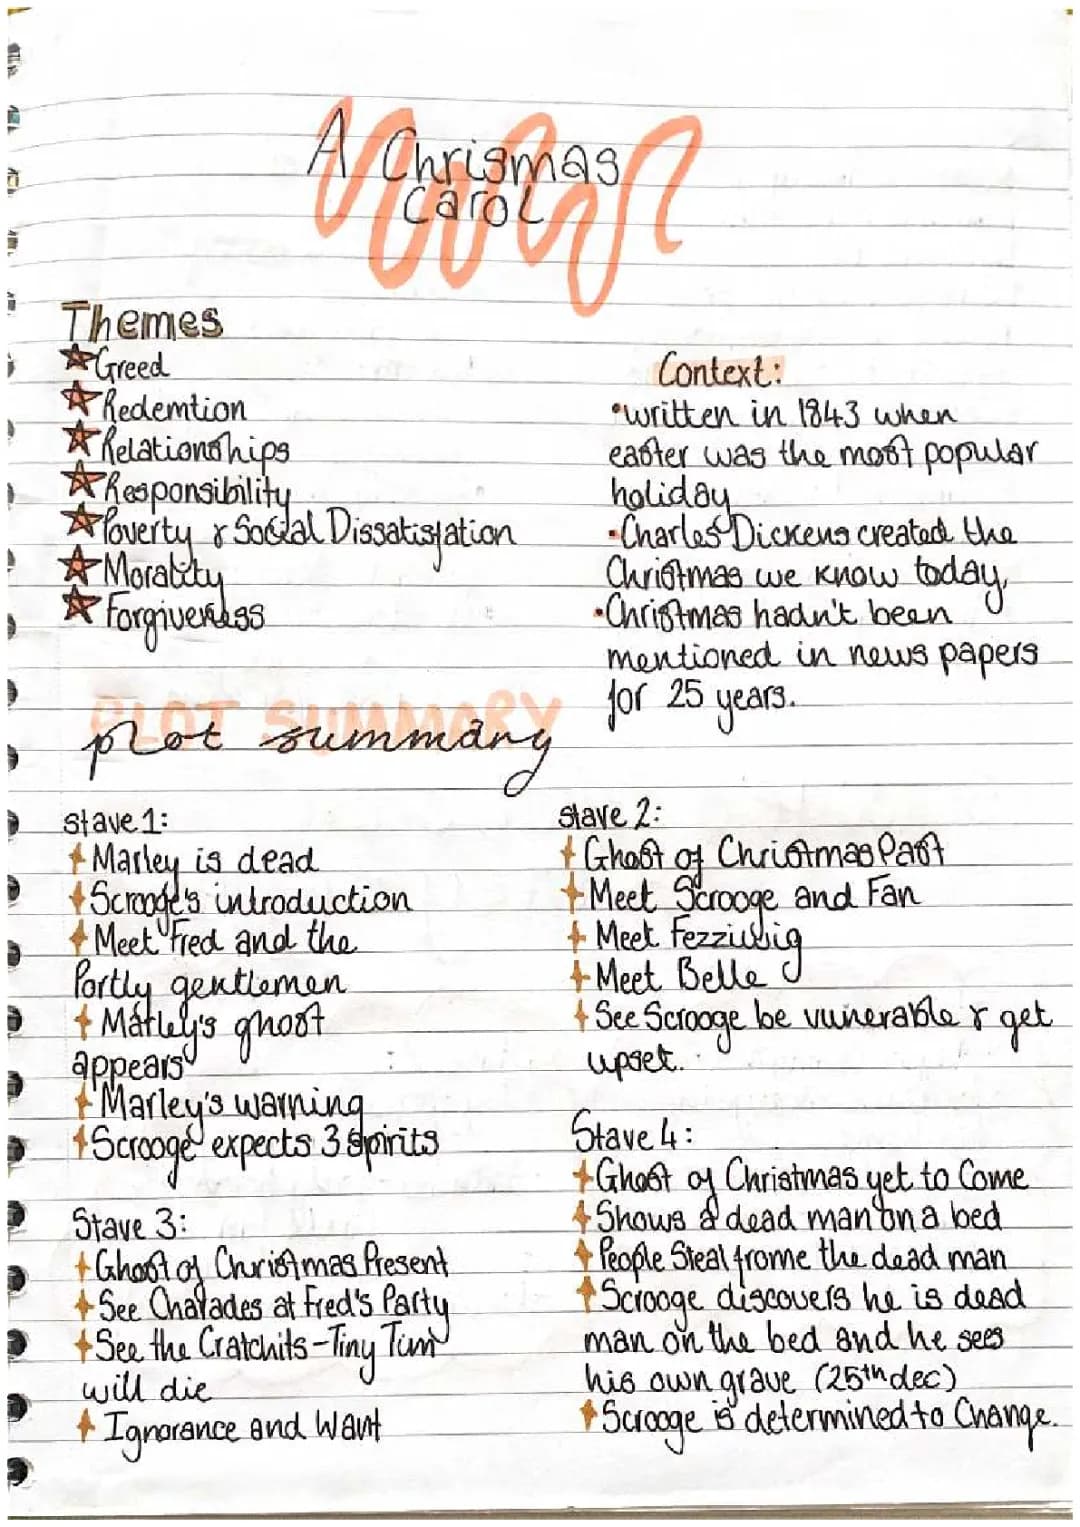 A Chrismas
Carol
Themes
Greed
Redemtion
Relationships
Responsibility
Poverty & Social Dissatisfation
Morality
Forgiveness
Context:
•written in 1843 when
easter was the most popular
holiday
•Charles Dickens created the
Christmas we know today,
•Christmas hadn't been
mentioned in news papers
for 25 years.
PLOT SUMMARY
plot summary
stave 1:
Marley is dead
Scrooge's introduction
Meet Fred and the
Portly gentlemen
Marley's ghost
appears
Marley's warning
Scrooge expects 3 spirits
stave 2:
Ghost of Christmas Past
Meet Scrooge and Fan
Meet Fezziwig
Meet Belle
See Scrooge be vunerable & get
upset.
Stave 3:
Ghost of Christmas Present
See Charades at Fred's Party
See the Cratchits - Tiny Tim
will die
Ignorance and Want
Stave 4:
Ghost of Christmas yet to Come
Shows a dead man on a bed
People Steal frome the dead man
Scrooge discovers he is dead
man on the bed and he sees
his own grave (25th dec)
Scrooge is determined to Change.